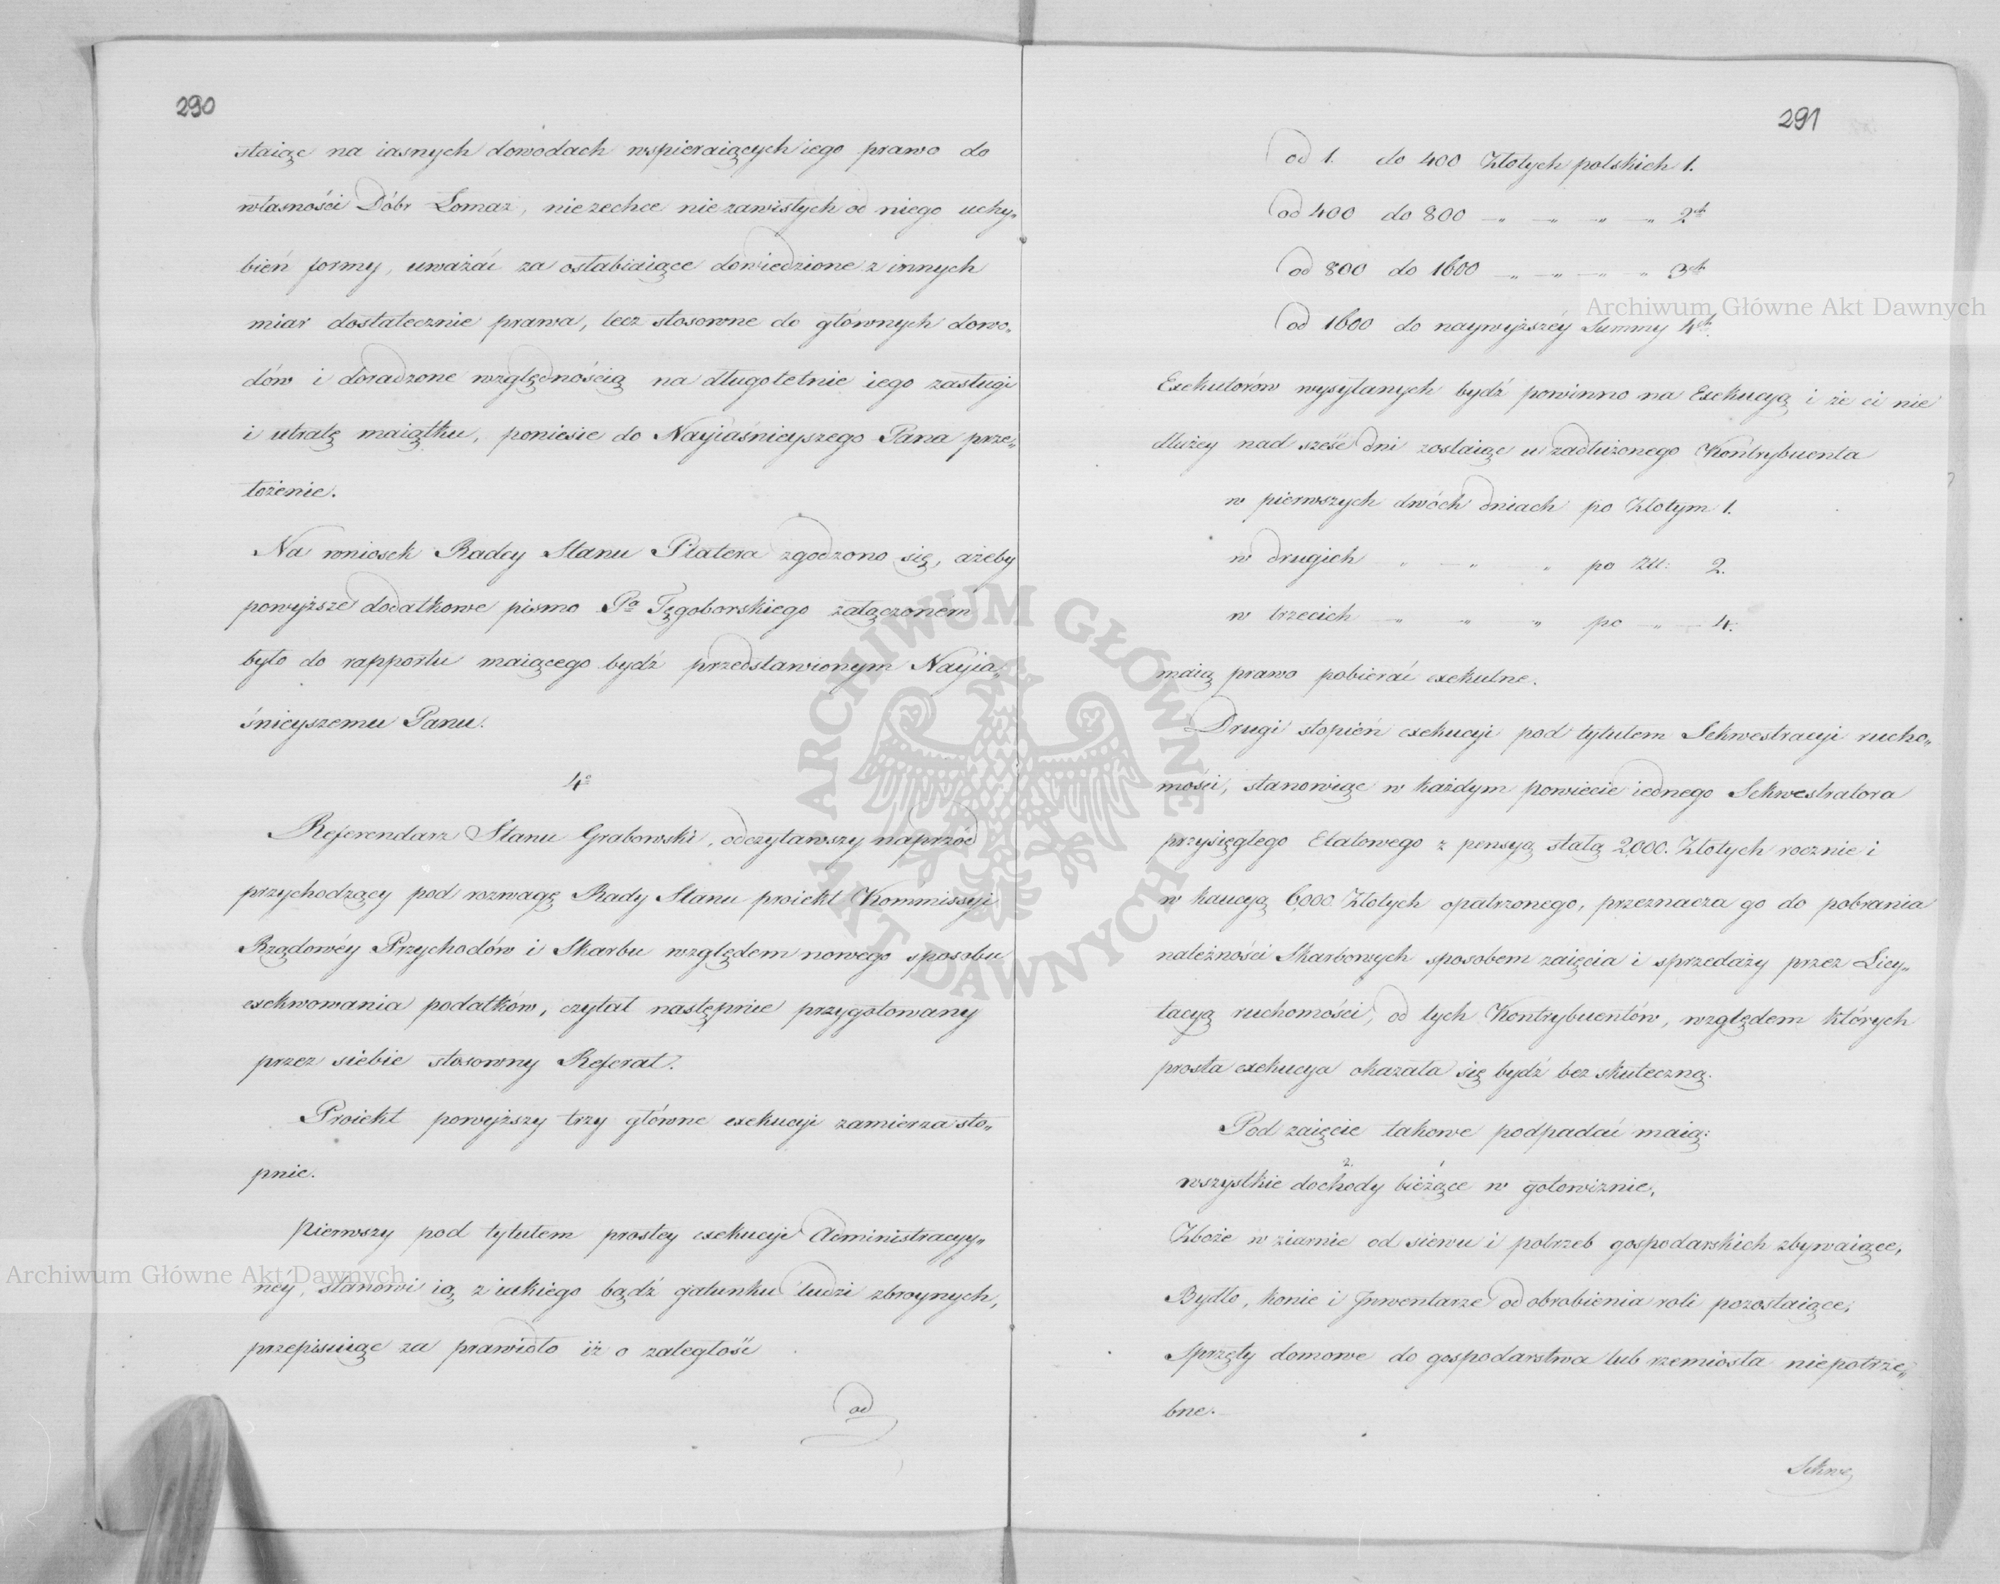 290
staiąc na iasnych dowodach wspieraiących iego prawo do
własności Dóbr Łomaz, niezechce niezawistych od niego uchy„
bień formy, uważać za osłabiaiące dowiedzione z innych
miar dostatecznie prawa, lecz stosowne do głównych dowo„
dów i doradzone względnością na długoletnie iego zasługi
i utratę maiątku, poniesie do Nayiaśnieyszego Pana prze„
łożenie.
Na wniosek Radcy Stanu Platera zgodzono się, ażeby
powyższe dodatkowe pismo Pa Tęgoborskiego załączonem
było do rapportu maiącego bydź przedstawionym Nayia„
śnieyszemu Panu.
4º
Referendarz Stanu Grabowski, odczytawszy naprzód
przychodzący pod rozwagę Rady Stanu proiekt Kommissyi
Rządowéy Przychodów i Skarbu względem nowego sposobu
exekwowania podatków, czytał następnie przygotowany
przez siebie stosowny Referat.
Proiekt powyższy trzy główne exekucyi zamierza sto„
pnie.
Pierwszy pod tytułem prostey exekucyi Administracyy„
néy, stanowi ią z iakiego bądź gatunku ludzi zbroynych,
przepisuiąc za prawidło iż o zaległość
od
291
od 1. do 400 Złotych polskich 1.
od 400 do 800 — „ — „ — „ — „ 2ch
od 800 do 1600 — „ — „ — „ — „ 3ch
od 1600 do naywyższéy Summy 4ch
Exekutorów wysyłanych bydź powinno na Exekucyą i że ci nie
dłużey nad sześć dni zostaiąc u zadłużonego Kontrybuenta
w pierwszych dwóch dniach po Złotym 1.
w drugich „ — „ — „ po Złł: 2.
w trzecich — „ „ „ po — „ — 4.
maią prawo pobierać exekutne.
Drugi stopień exekucyi pod tytułem Sekwestracyi rucho„
mości, stanowiąc w każdym powiecie iednego Sekwestratora
przysięgłego Etatowego z pensyą stałą 2000. Złotych rocznie i
w kaucyą 6,000. Złotych opatrzonego, przeznacza go do pobrania
należności Skarbowych sposobem zaięcia i sprzedaży przez Licy„
tacyą ruchomości, od tych Kontrybuentów, względem których
prosta exekucya okazała się bydź bez skuteczną.
Pod zaięcie takowe podpadać maią:
2. 1
wszystkie dochody bieżące w gotowiznie,
Zboże w ziarnie od siewu i potrzeb gospodarskich zbywaiące,
Bydło, konie i Inwentarze od obrobienia roli pozostaiące,
Sprzęty domowe do gospodarstwa lub rzemiosła niepotrze„
bne.
Sekwe„
Archiwum Główne Akt Dawnych
Archiwum Główne Akt Dawnych
ARCHIWUM GŁÓWNE AKT DAWNYCH